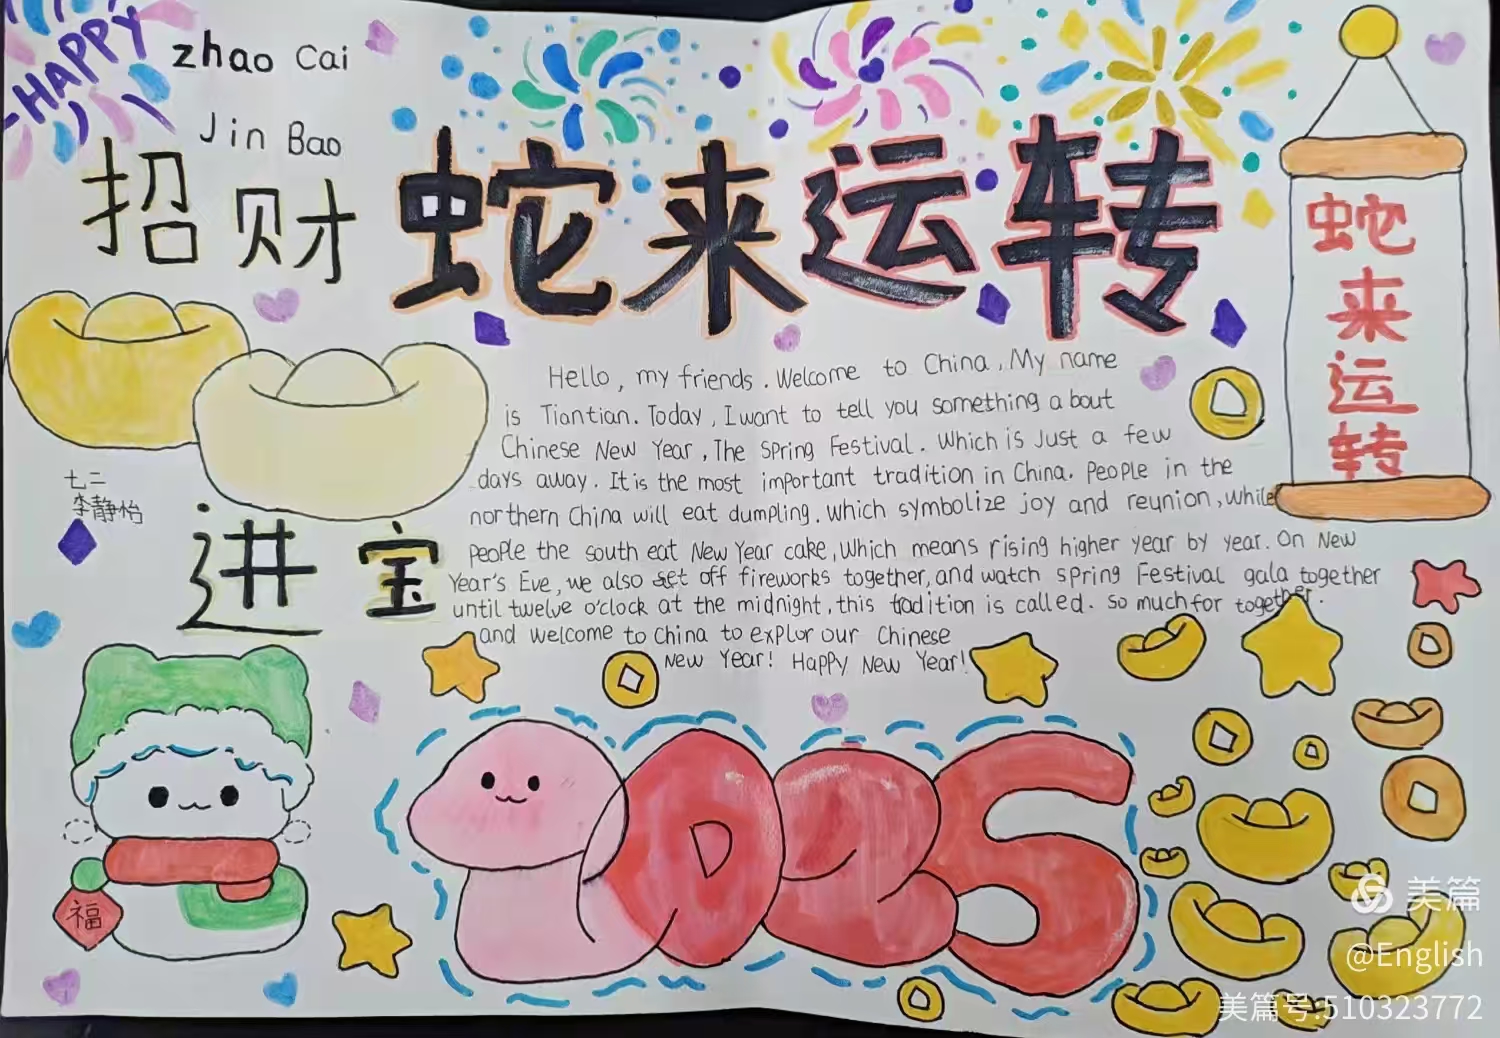 HAPPY
zhao Cai
Jin Bao
招财
蛇来运转
蛇来运转
Hello, my friends. Welcome to China, My name
is Tiantian. Today, I want to tell you something about
Chinese New Year, The Spring Festival. Which is Just a few
days away. It is the most important tradition in China. People in the
northern China will eat dumpling. Which symbolize joy and reunion, while
People the south eat New Year cake, Which means rising higher year by year. On New
Year's Eve, we also set off fireworks together, and watch Spring Festival gala together
until twelve o'clock at the midnight, this tradition is called. So much for together.
and Welcome to China to explor our Chinese
New Year! Happy New Year!
七二
李静怡
进宝
福
2025
美篇
@English
美篇号:510323772